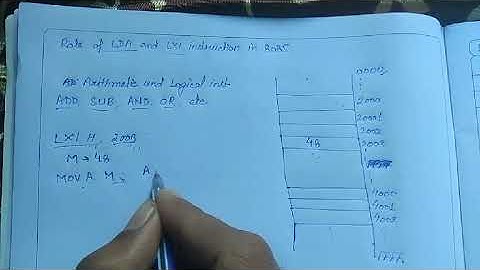 Role of LDA and LXI instruction in 8085
Arithmetic and Logical inst
ADD, SUB, AND, OR etc
LXI H, 2003
M → 48
MOV A M; A
0000
2000
2001
2002
48 2003
4000
4001
4002
FFFF